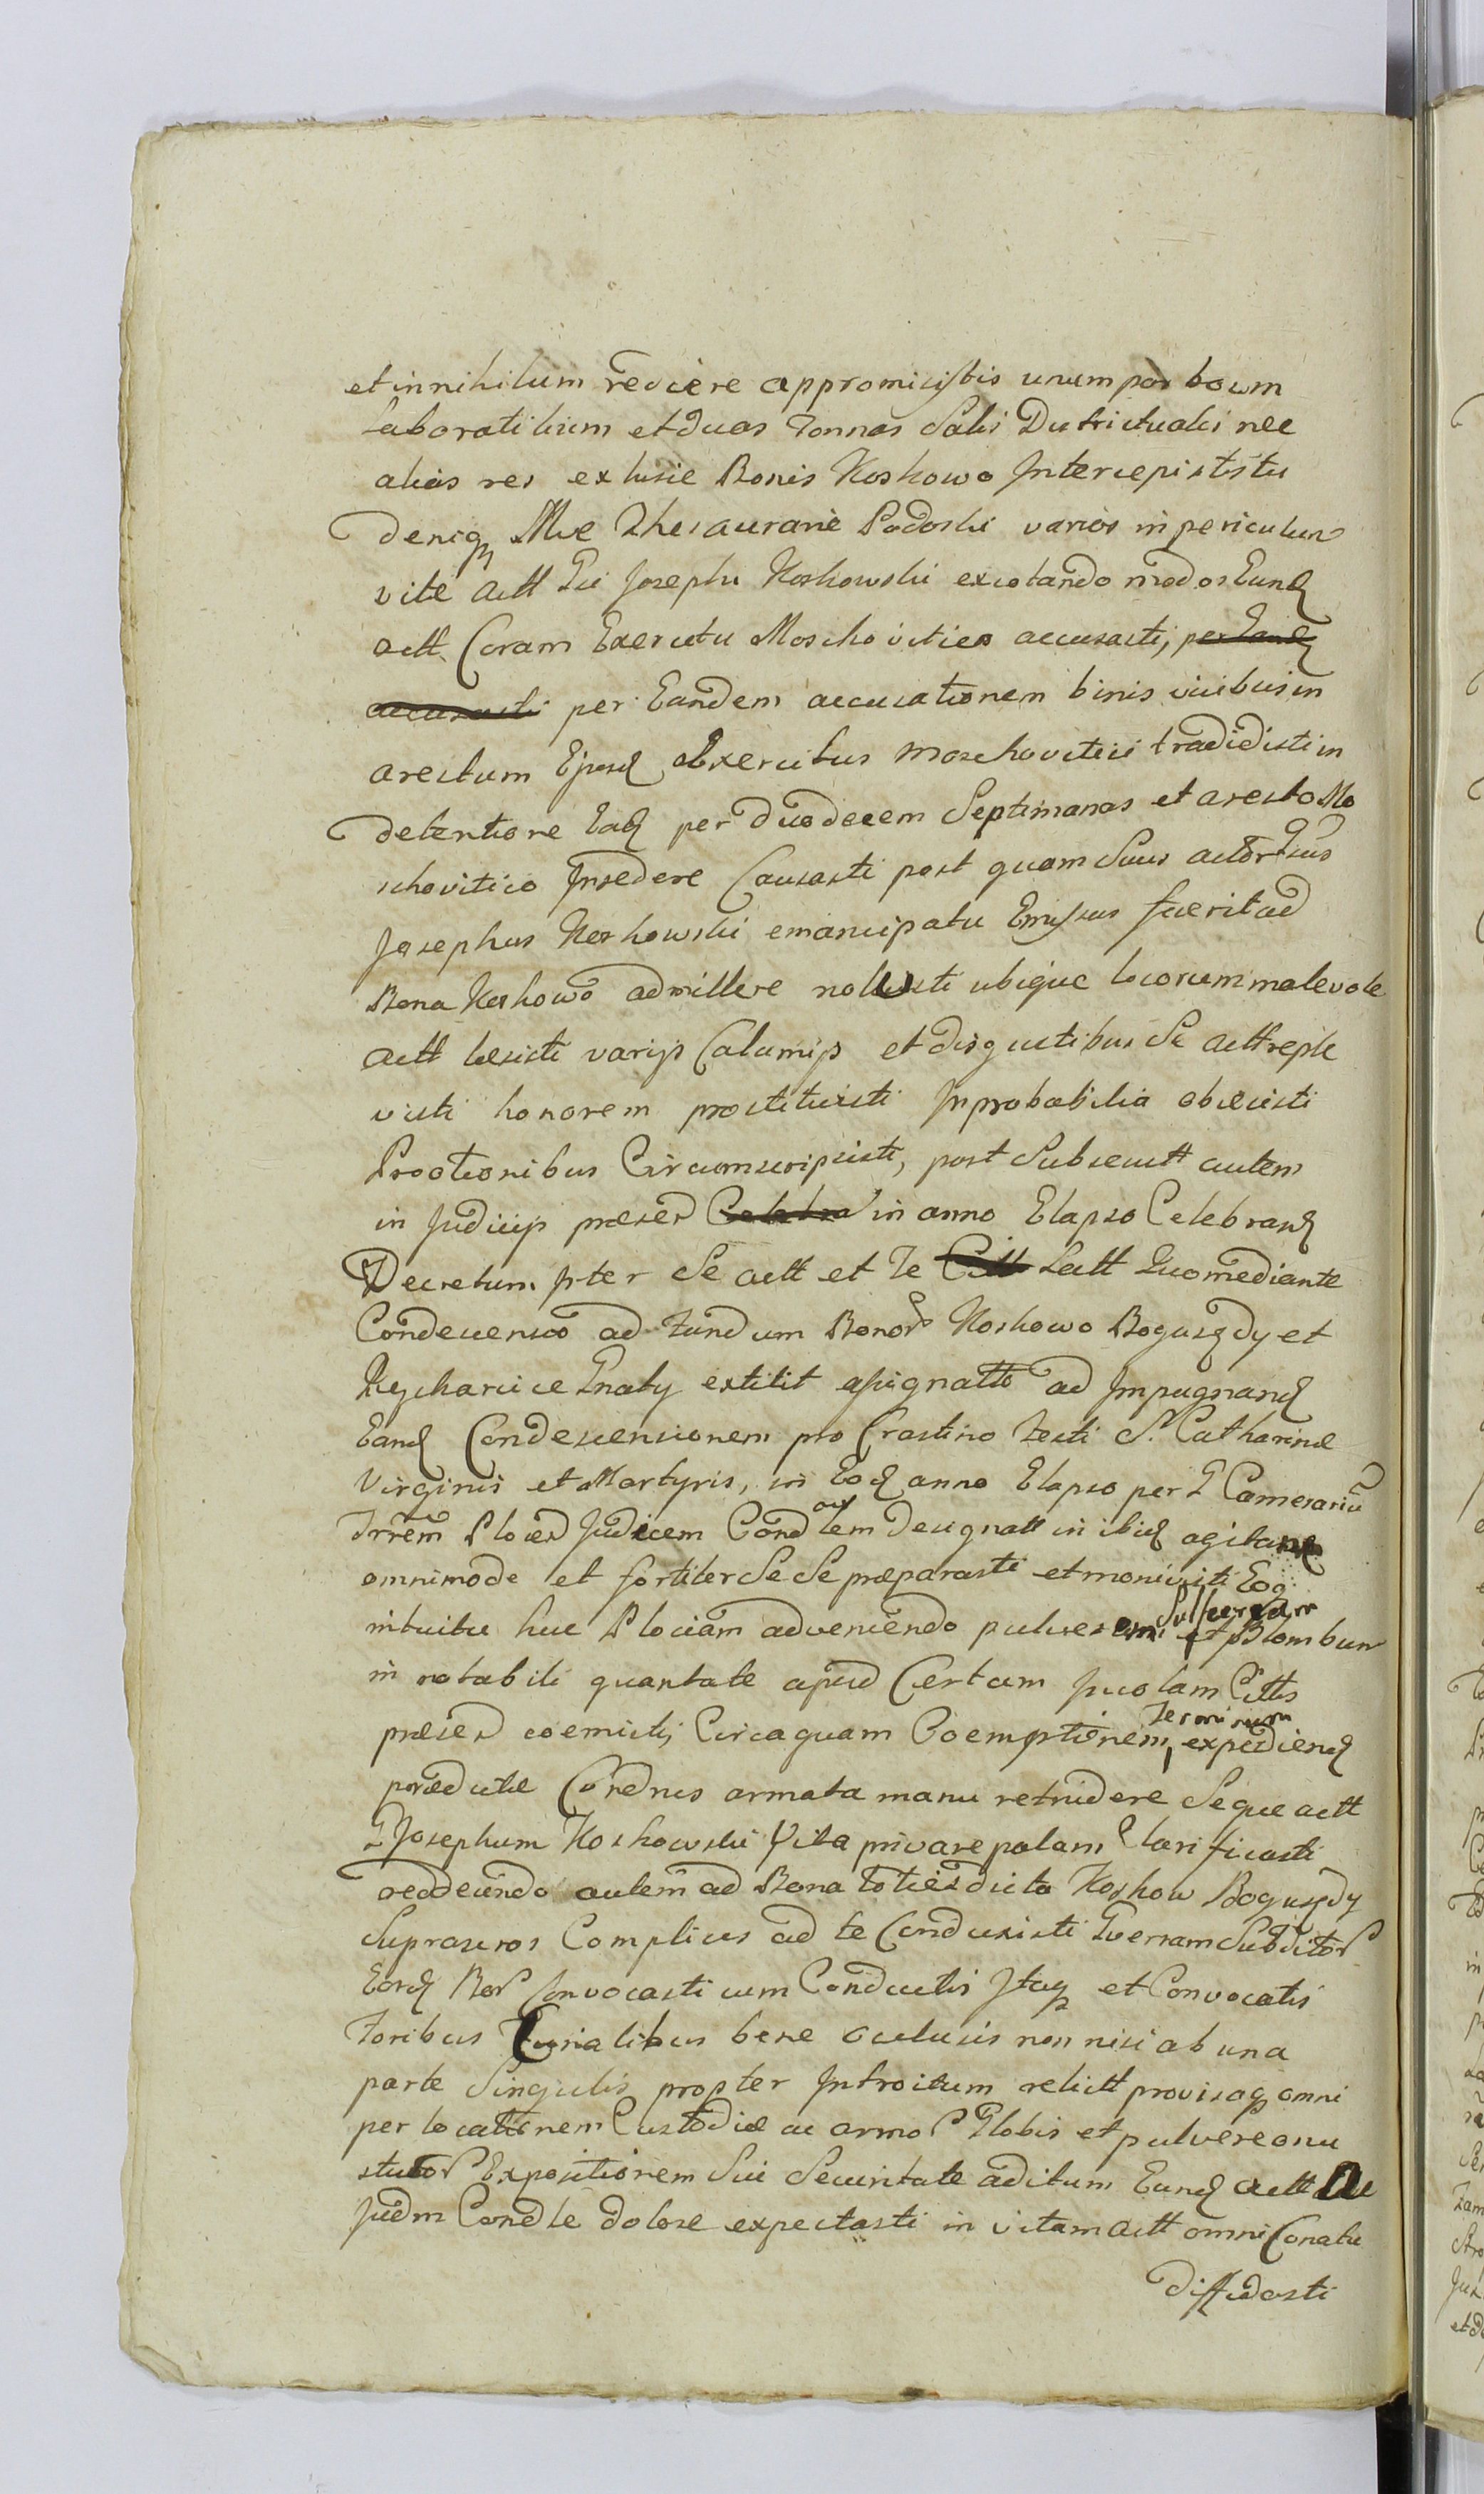 et in nihilum reviere appromisistis unum par boum
laboratilium et duas Tonnas Salis Dutrictualis nec
alias res exhisie Bonis Koskowo Intercepististu
deniq Mce Thesaurarie Podoski varios in periculum
vite actt Gii Josephi Koskowski excotando modos Eund
actt Coram Exercitu Moschovitico accusasti, per Eand
accusasti per Eandem accusationem binis vicibus in
arestum Ejusd Exercitus Moschovitici tradidisti in
detentione Ead per duodecem Septimanas et aresto Mo
schovitico Insedere Causasti post quam Suus actor Gsus
Josephus Koskowski emancipatu Emissus fuerit ad
Bona Koskowo admittere noluisti ubique locorum malevole
actt læsisti varijs Calumijs et disgustibus Se actt reple
visti honorem prostituisti Improbabilia obiecisti
Proctionibus Circumscripsisti, post Subsecutt autem
in Judicijs præsed Celebra in anno Elapso Celebrand
Decretum pter Se actt et Te Citt Latt Quo mediante
Condescensio ad Fundum Bonor Koskowo Boguszdy et
Rycharcice Gnaty extitit assignatto ad Impugnand
Eand Condescensionem pro Crastino Festi S. Catharinæ
Virginis et Martyris, in Eod anno Elapso per G Camerariū
Trrem Ploced Judicem Condlem designatt in ibid agitand
omnimode et fortiter Se Se præparasti et monivisti Eoq
intuitu huc Plociam adveniendo pulverem Sulfuream et Plombum
in notabili quantate apud Certam Incolam Cittis
præsed coemisti, Circa quam Coemptionem Terminum expediend
prædictæ Condnis armata manu retrudere Seque actt
G Josephum Koskowski Vita privare palam Clarificasti
reddeundo autem ad Bona totiesdicta Koskow Boguszdy
Suprascros Complices ad te Conduxisti Gverram Subditor
Eord Bor Convocasti cum Conductis Itaq et Convocatis
Foribus Curialibus bene oclusis non nisi ab una
parte Singulis propter Introitum relictt provisaq omni
per locationem Custodiæ ac armor Globis et pulvere onu
stuor Expositionem Sui Securitate aditum Eund actt ac
Judm Condle dolose expectasti in vitam actt omni Conatu
diffidasti